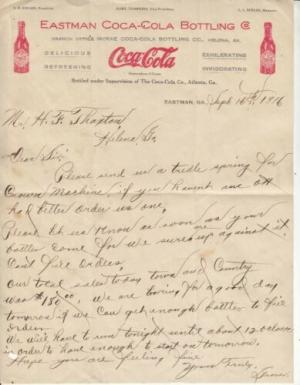 EASTMAN COCA-COLA BOTTLING Co
BRANCH OFFICE McRAE COCA-COLA BOTTLING CO., HELENA, GA.
DELICIOUS
REFRESHING
Coca-Cola
EXHILERATING
INVIGORATING
Bottled under Supervision of The Coca-Cola Co., Atlanta, Ga.
EASTMAN, GA. Sept 16th 1916
Mr. H. F. Thaxton
Helena Ga.
Dear Sir:
Please send us a tredle spring for
Crown Machine, if you havent one
had better order us one.
Please let us know as soon as your
bottles come for we are up against it
Cant fill orders,
Our total sales today town and Country
was $150.00. We are looking for a good day
tomorrow if we can get enough bottles to fill
orders.
We will have to run tonight until about 12 O clock
in order to have enough to start on tomorrow.
Hope you are feeling fine
Yours Truly,